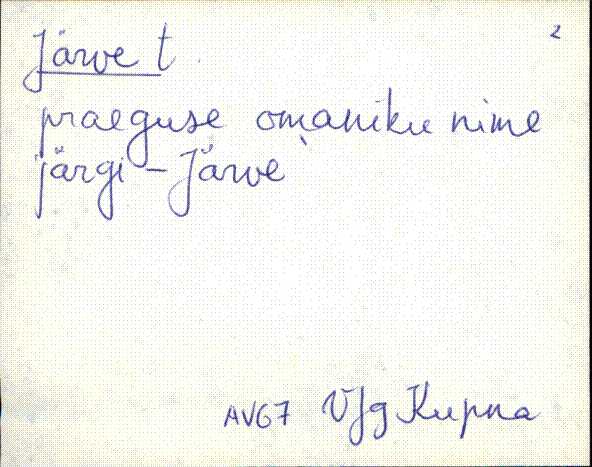 2
Järve t.
praeguse omaniku nime
järgi – Järve
AV67 VJg Kupna